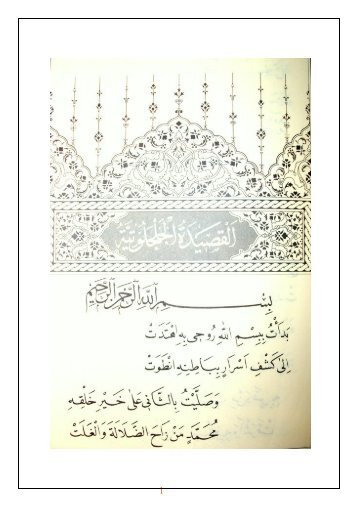 القصيدة الجلجلوتية
بِسْمِ اللهِ الرَّحْمٰنِ الرَّحِيمِ
بَدَأْتُ بِبِسْمِ اللهِ رُوحِى بِهِ اهْتَدَتْ
اِلٰى كَشْفِ اَسْرَارٍ بِبَاطِنِهِ انْطَوَتْ
وَصَلَّيْتُ بِالثَّانِى عَلٰى خَيْرِ خَلْقِهِ
مُحَمَّدٍ مَنْ زَاحَ الضَّلَالَةَ وَالْغَلَتْ